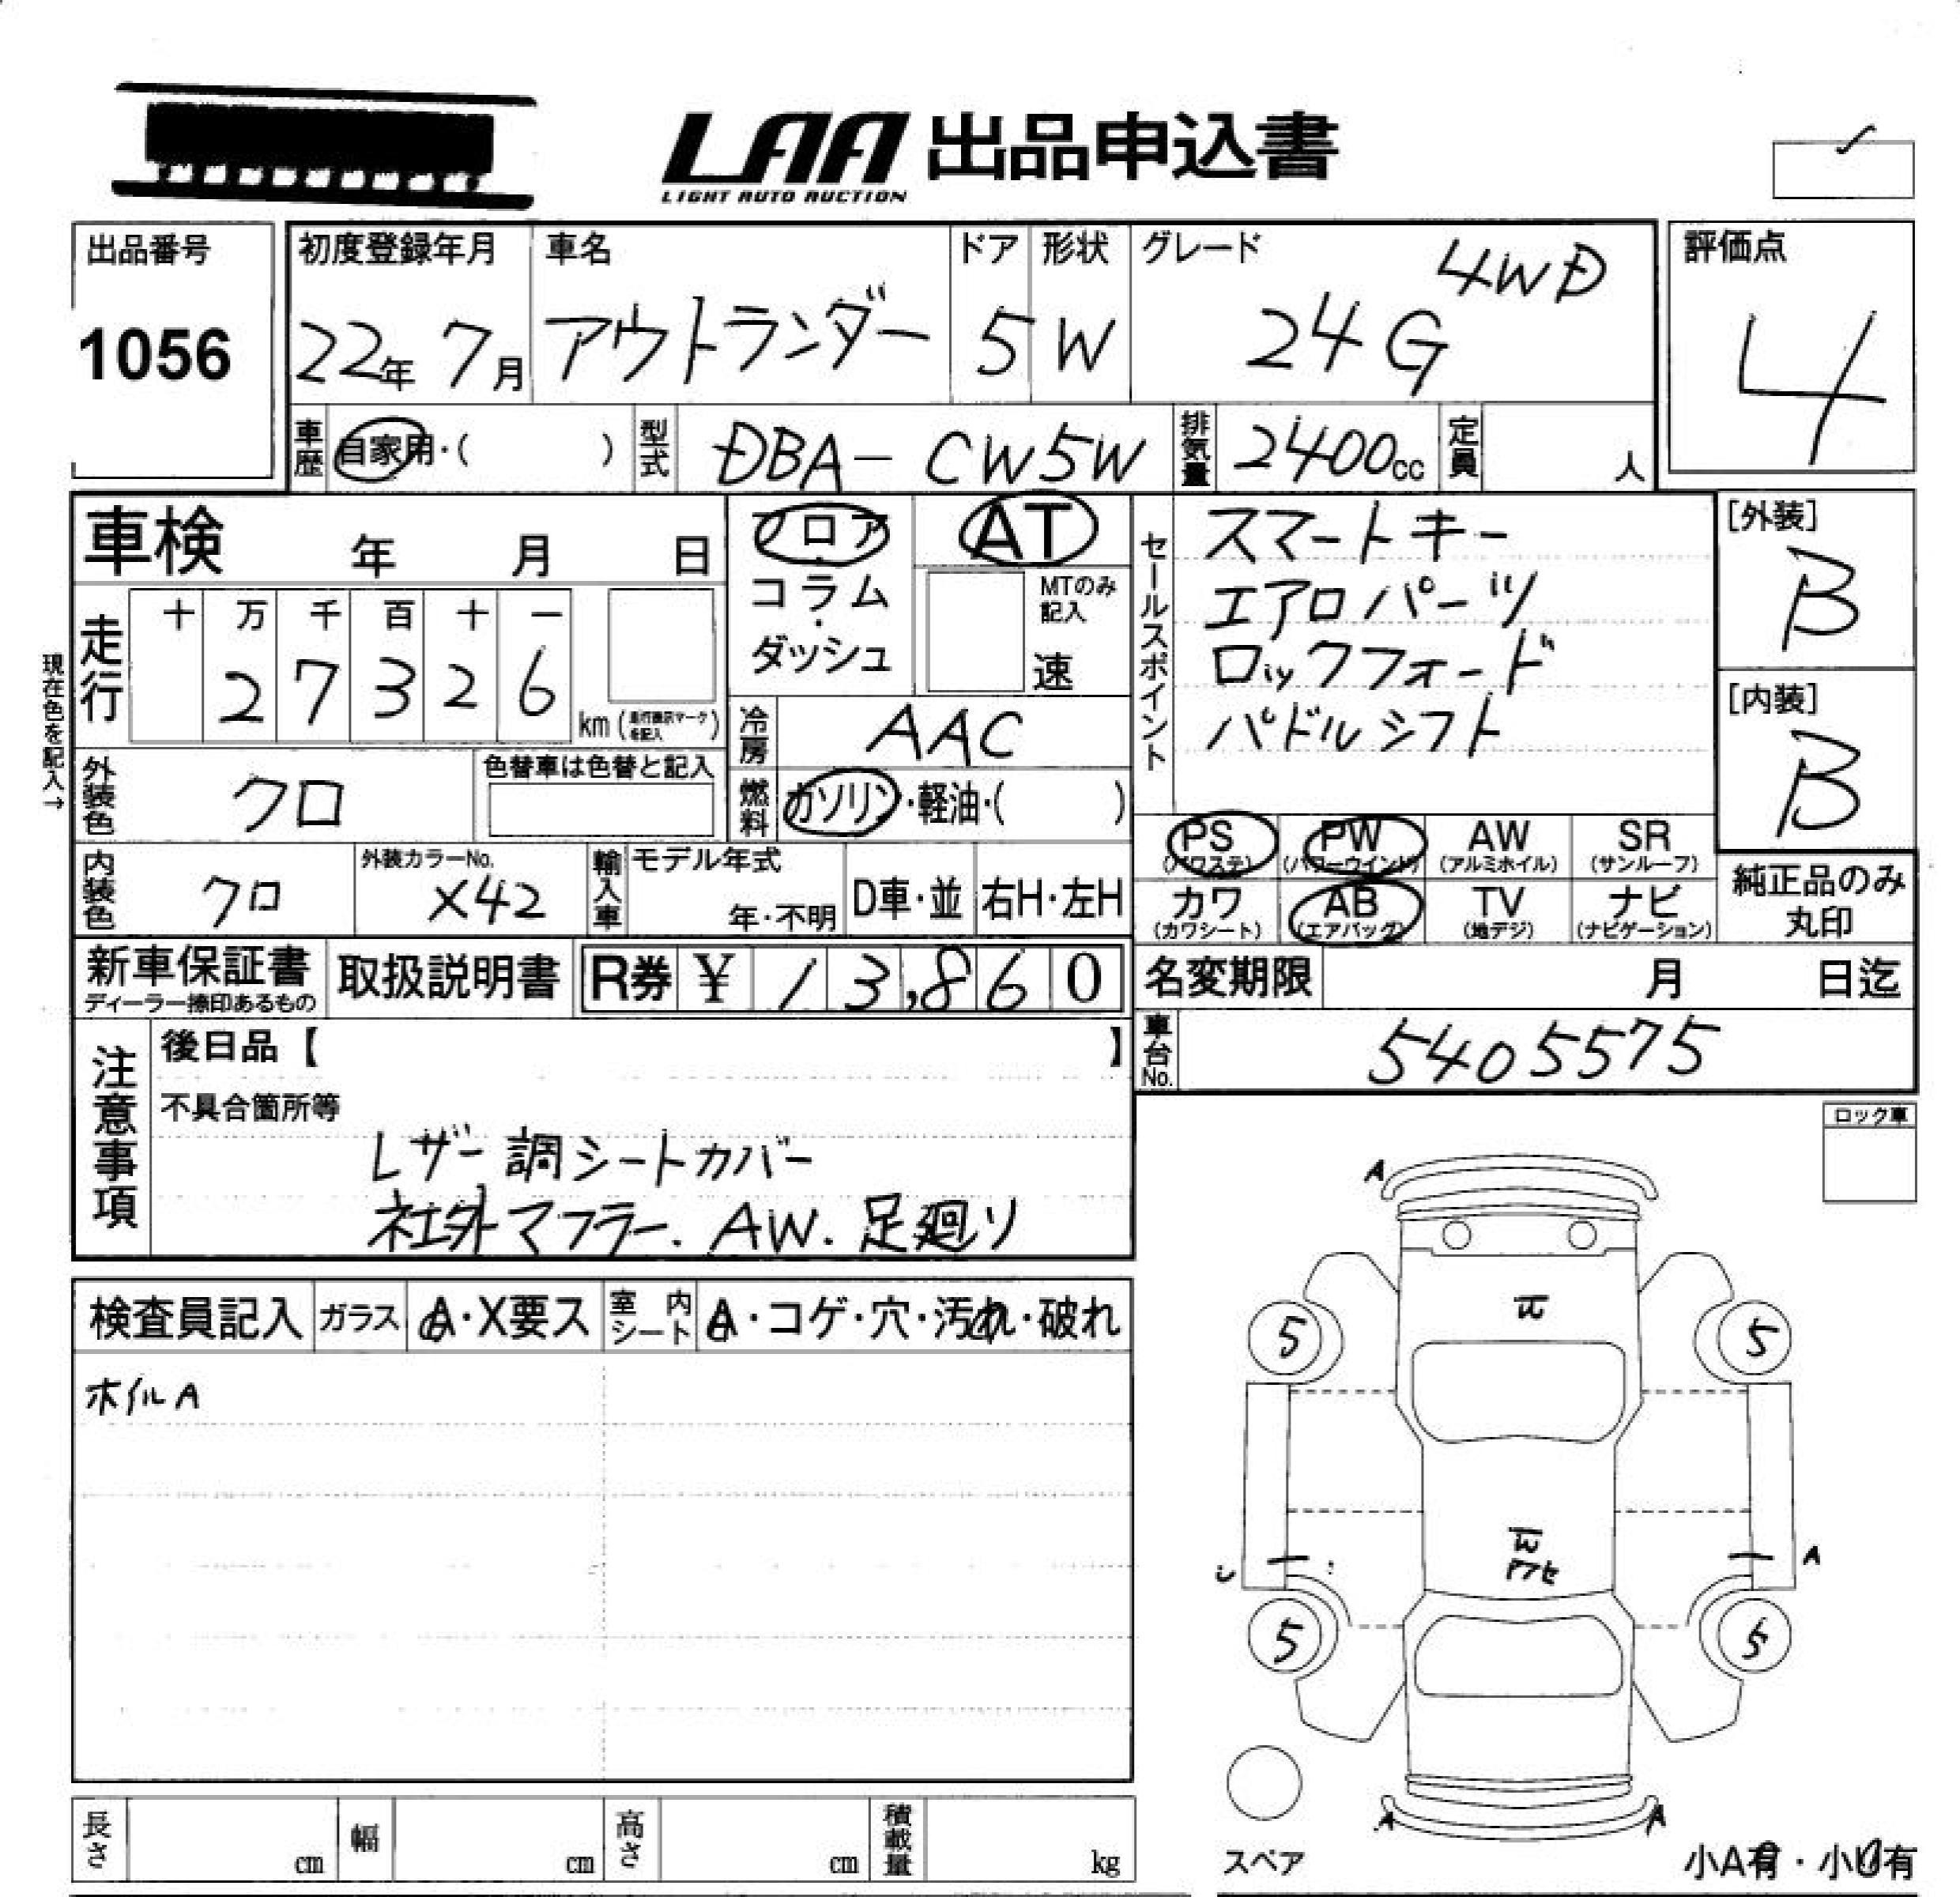 LAA 出品申込書
LIGHT AUTO AUCTION
出品番号
1056
初度登録年月
22年 7月
車名
アウトランダー
ドア
5
形状
W
グレード
24G 4WD
評価点
4
車歴 自家用・( )
型式 DBA-CW5W
排気量 2400cc
定員 人
車検 年 月 日
フロア
・
コラム
・
ダッシュ
AT
MTのみ
記入
速
セールスポイント
スマートキー
エアロパーツ
ロックフォード
パドルシフト
[外装]
B
[内装]
B
現在色を記入→
走行
十 万 千 百 十 一
2 7 3 2 6
km (走行表示マークを記入)
冷房 AAC
外装色 クロ
色替車は色替と記入
燃料 ガソリン・軽油・( )
PS
(パワステ)
PW
(パワーウインド)
AW
(アルミホイル)
SR
(サンルーフ)
内装色 クロ
外装カラーNo.
X42
輸入車
モデル年式
年・不明
D車・並
右H・左H
カワ
(カワシート)
AB
(エアバッグ)
TV
(地デジ)
ナビ
(ナビゲーション)
純正品のみ
丸印
新車保証書
ディーラー捺印あるもの
取扱説明書
R券 ¥ 13,860
名変期限 月 日迄
車台No. 5405575
注意事項
後日品【 】
不具合箇所等
レザー調シートカバー
社外マフラー. AW. 足廻り
ロック車
検査員記入
ガラス
A・X要ス
室内
シート
A・コゲ・穴・汚れ・破れ
ホイルA
A
W
5
5
A
W
アセ
5
5
A
A
スペア
小A有・小U有
長さ cm
幅 cm
高さ cm
積載量 kg